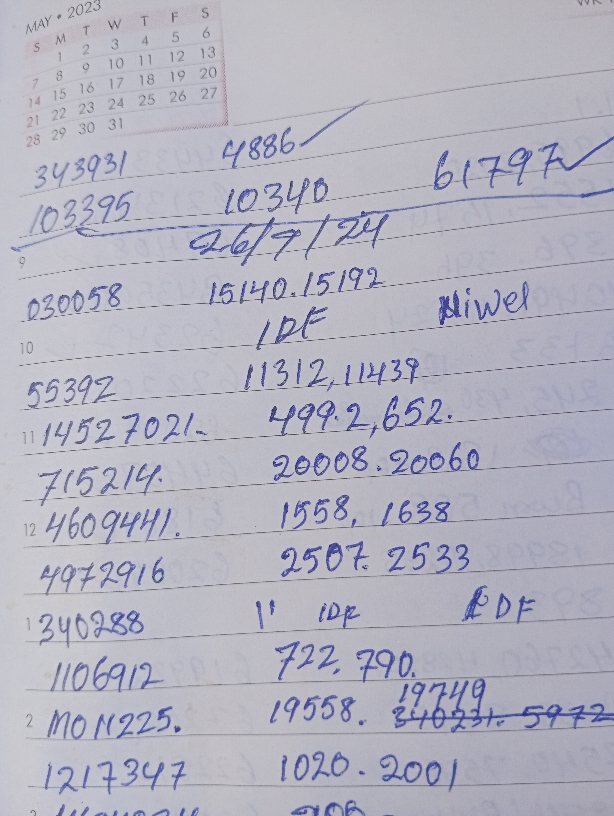 MAY • 2023
S M T W T F S
1 2 3 4 5 6
7 8 9 10 11 12 13
14 15 16 17 18 19 20
21 22 23 24 25 26 27
28 29 30 31
343931 4886
103395 10340 61797
26/7/24
9
030058 15140.15192
10 IDF Niwel
55392 11312,11439
11 14527021. 499.2,652.
715214. 20008.20060
12 4609441. 1558, 1638
4972916 2507. 2533
1 340288 11 IDF IDF
1106912 722. 790.
19749
2 19558. 340231. 5972
1217347 1020.2001